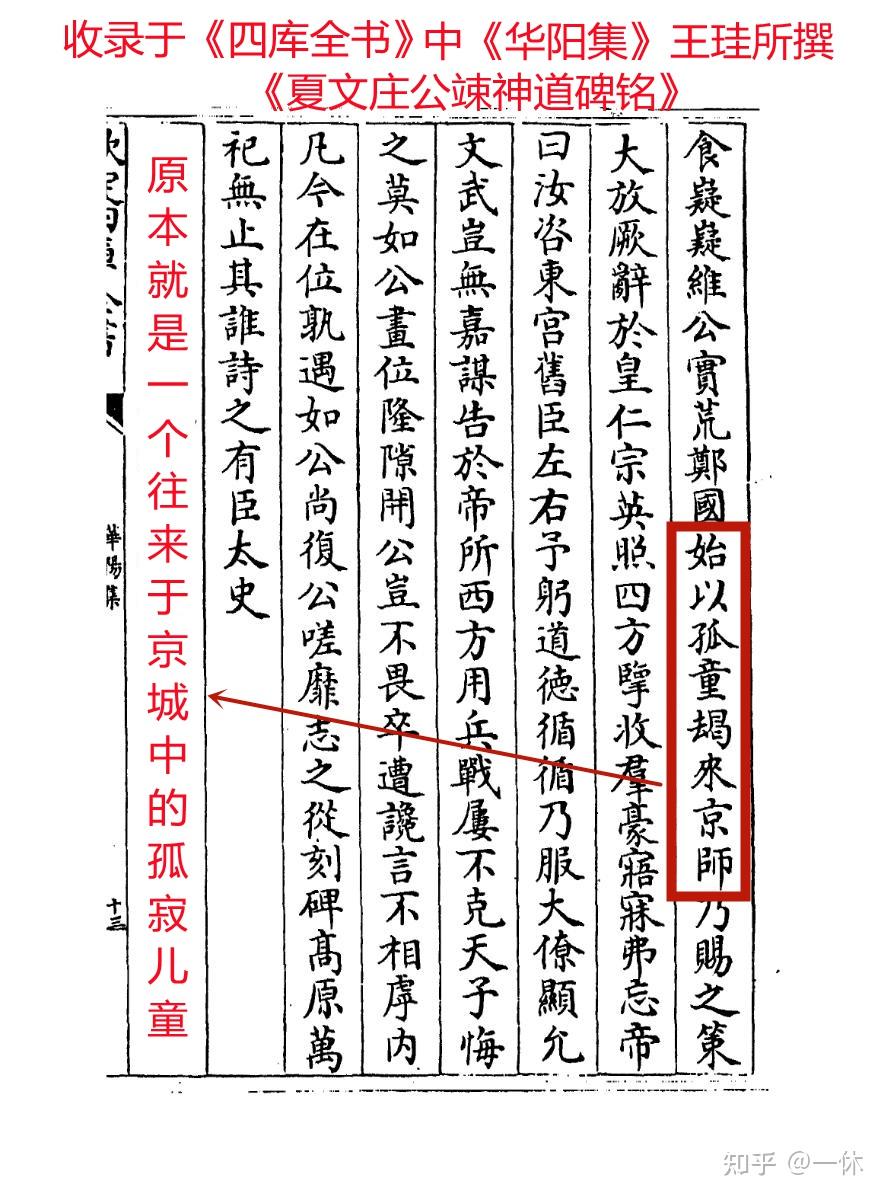 收录于《四库全书》中《华阳集》王珪所撰
《夏文庄公竦神道碑铭》
食嶷嶷維公實荒鄭國始以孤童朅來京師乃賜之策
大放厥辭於皇仁宗英照四方擥收羣豪寤寐弗忘帝
曰汝咨東宮舊臣左右予躬道徳循循乃服大僚顯允
文武豈無嘉謀告於帝所西方用兵戰屢不克天子悔
之莫如公畫位隆隙開公豈不畏卒遭讒言不相虖内
凡今在位孰遇如公尚復公嗟靡志之從刻碑髙原萬
祀無止其誰詩之有臣太史
原本就是一个往来于京城中的孤寂儿童
華陽集
十三
知乎 @一休